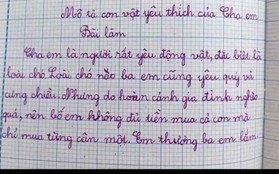 Mô tả con vật yêu thích của Cha em
Bài làm
Cha em là người rất yêu động vật, đặc biệt là
loài chó. Loài chó nào ba em cũng yêu quý và
cưng chiều. Nhưng do hoàn cảnh gia đình nghèo
quá, nên bố em không đủ tiền mua cả con mà
chỉ mua từng cân một. Em thương ba em lắm.